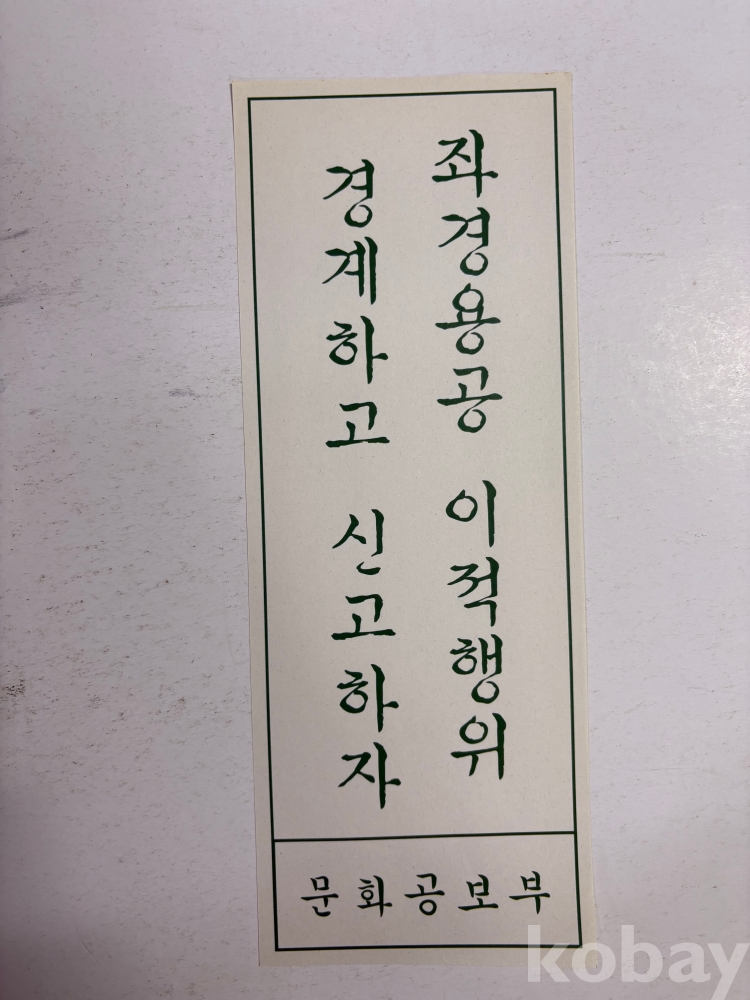 좌경용공 이적행위
경계하고 신고하자
문화공보부
kobay